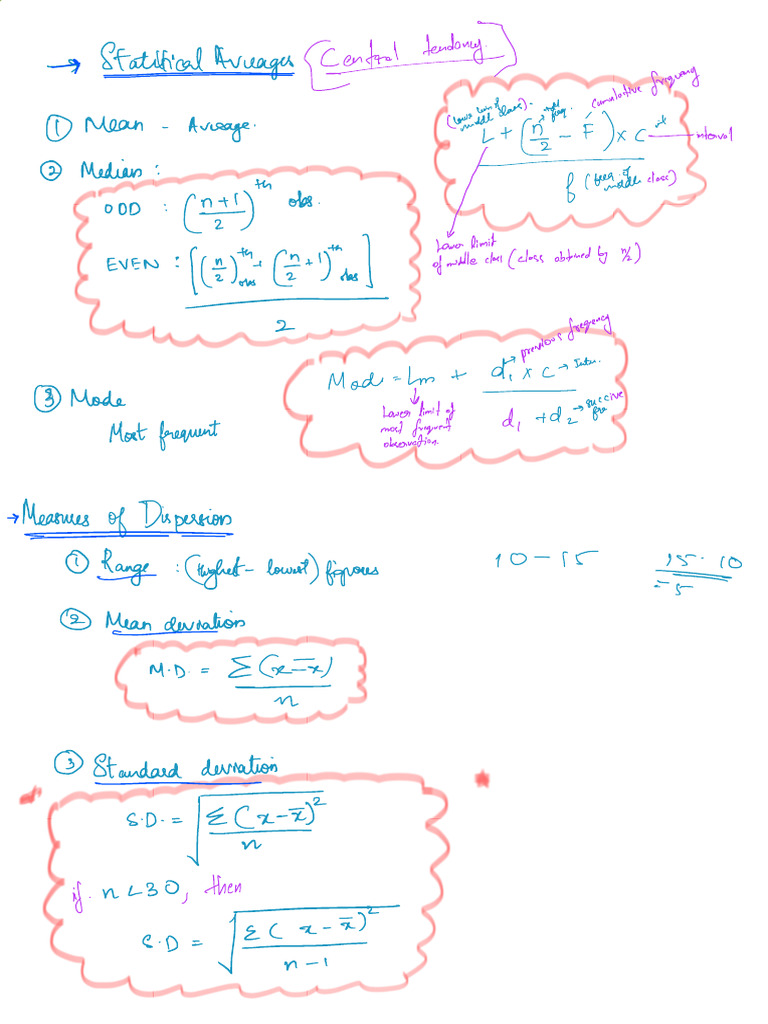 → Statistical Averages {Central tendency}
① Mean - Average.
② Median :
ODD : (n+1/2)^th obs.
EVEN : [(n/2)^th obs + (n/2 + 1)^th obs]
2
(lower lim of middle class). total freq. cumulative frequency
L + (n/2 - F) x c → int interval
f (freq. of middle class)
Lower limit
of middle class (class obtained by n/2)
③ Mode
Most frequent
previous frequency
Mode = Lm + d₁ x c → Inter.
d₁ + d₂ →
Lower limit of
most frequent
observation.
→ Measures of Dispersion
① Range : (Highest - lowest) figures
10 - 15
15 - 10
= 5
② Mean deviation
M.D. = Σ(x - x̅)
n
③ Standard deviation
S.D. = √Σ(x - x̅)²
n
if n < 30, then
S.D = √Σ(x - x̅)²
n - 1